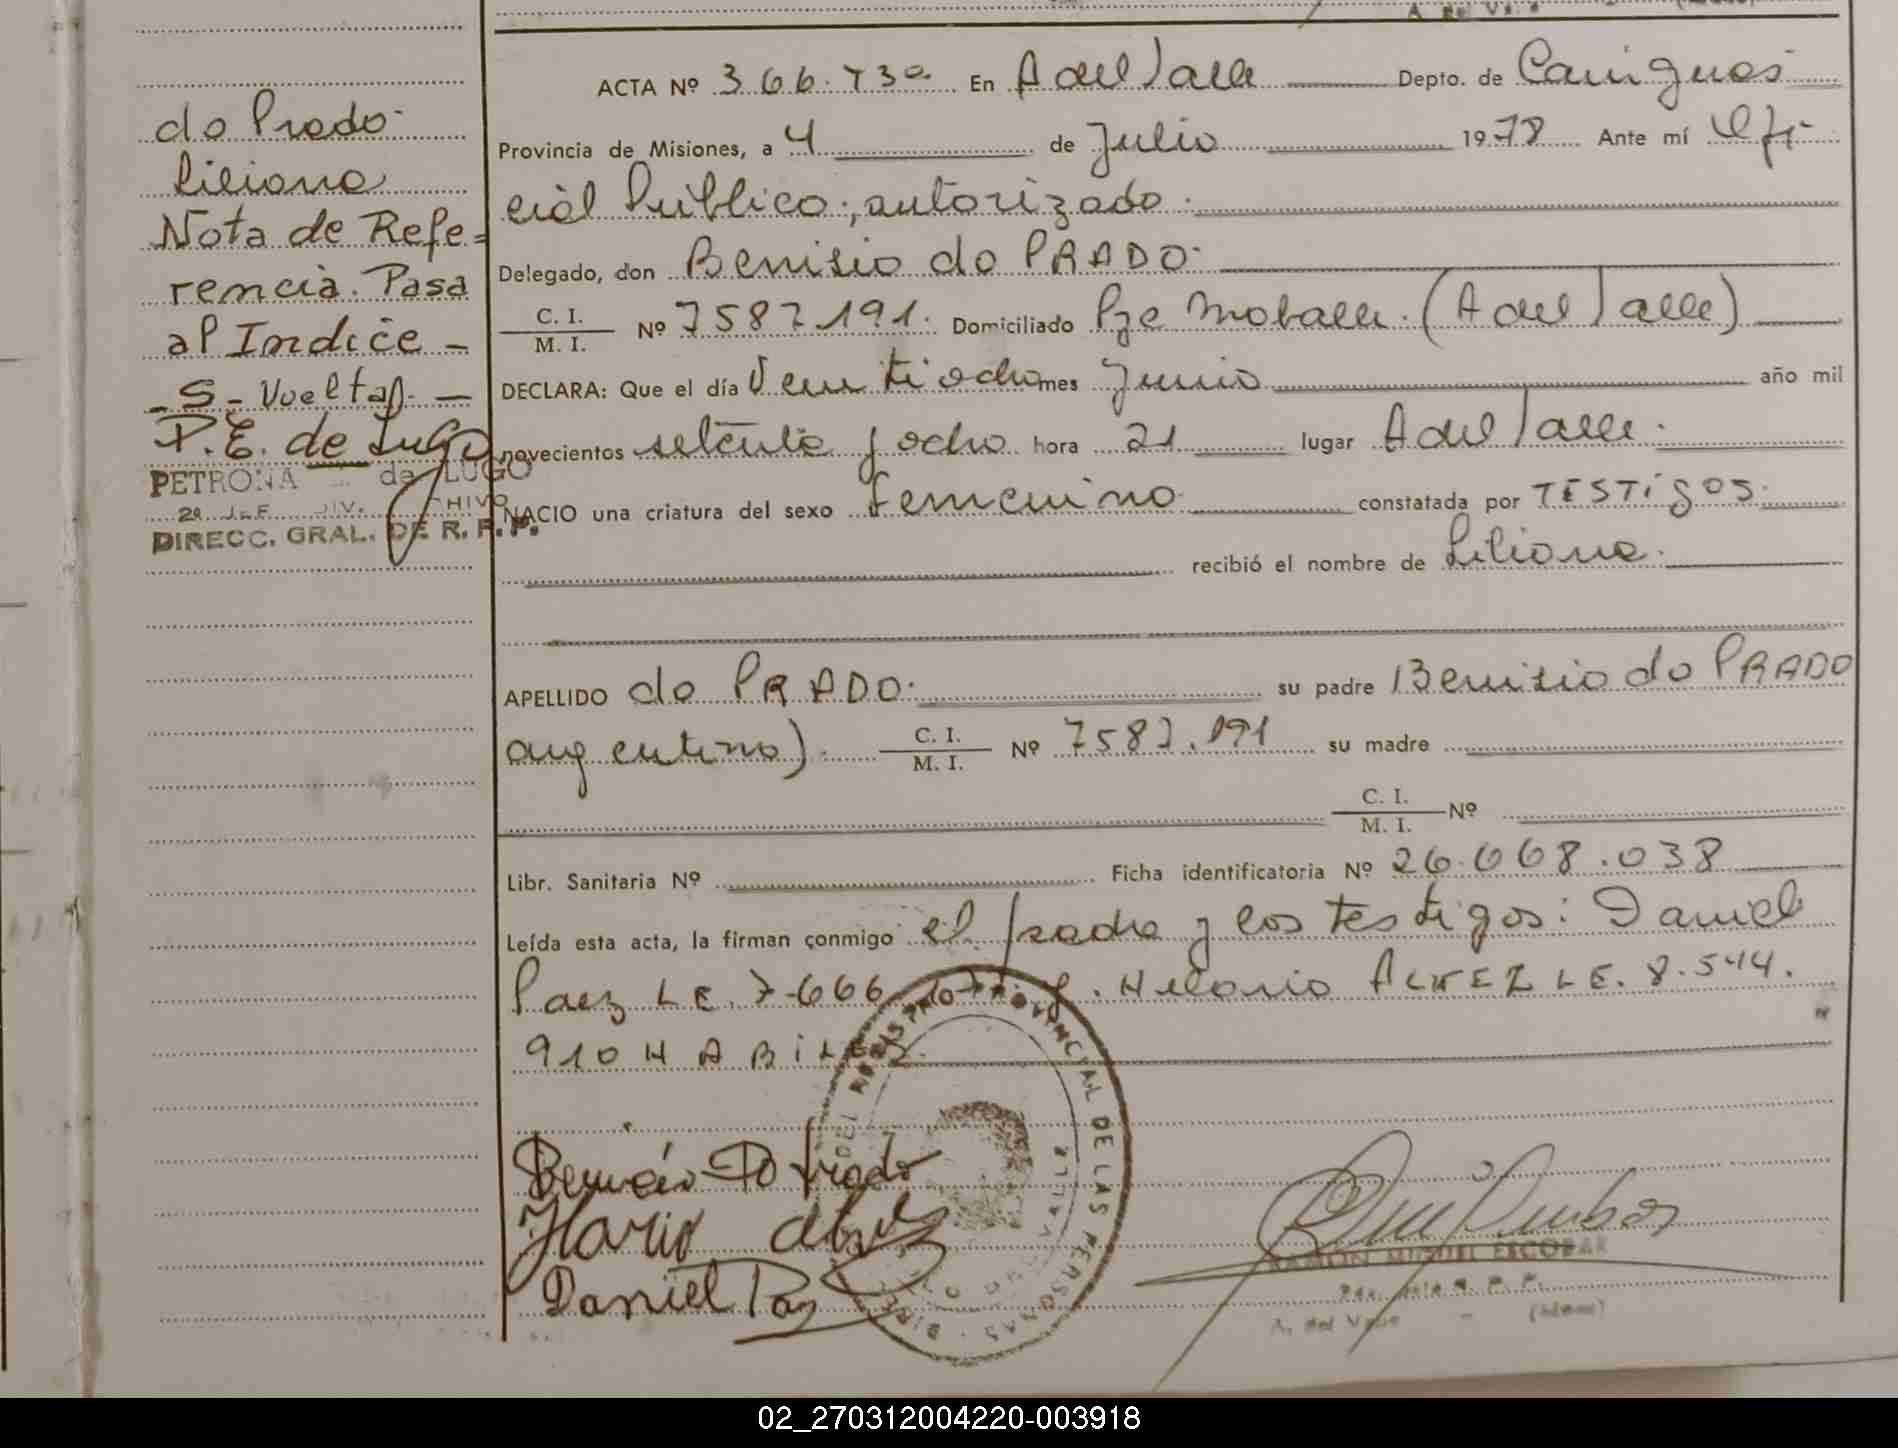 do Prado
Liliana
Nota de Refe=
rencia. Pasa
al Indice -
- S - Vuelta. -
P.E. de Lugo
PETRONA de LUGO
DIRECC. GRAL. DE R. P. P.
ACTA Nº 366. T3º En A del Valle Depto. de Cainguas
Provincia de Misiones, a 4 de Julio 1978 Ante mí Ofi-
cial Público, autorizado.
Delegado, don Benisio do PRADO.
C. I. / M. I. Nº 7587.191. Domiciliado Pje (A del Valle)
DECLARA: Que el día Veintiocho mes Junio año mil
novecientos setenta y ocho hora 21 lugar A del Valle.
NACIO una criatura del sexo femenino constatada por TESTigos.
recibió el nombre de Liliana.
APELLIDO do PRADO. su padre Benisio do PRADO
argentino). C. I. / M. I. Nº 7587.191 su madre
C. I. / M. I. Nº
Libr. Sanitaria Nº Ficha identificatoria Nº 26.668.038
Leída esta acta, la firman conmigo el padre y los testigos: Daniel
Paez LE. 7.666 LE. 8.544.
910 HABiLES.
DIREC PROVINCIAL DE LAS PERSONAS
Do Prado
Daniel Paz
RAMON MIGUEL ESCOBAR
A. del Valle (Mnes)
02_270312004220-003918